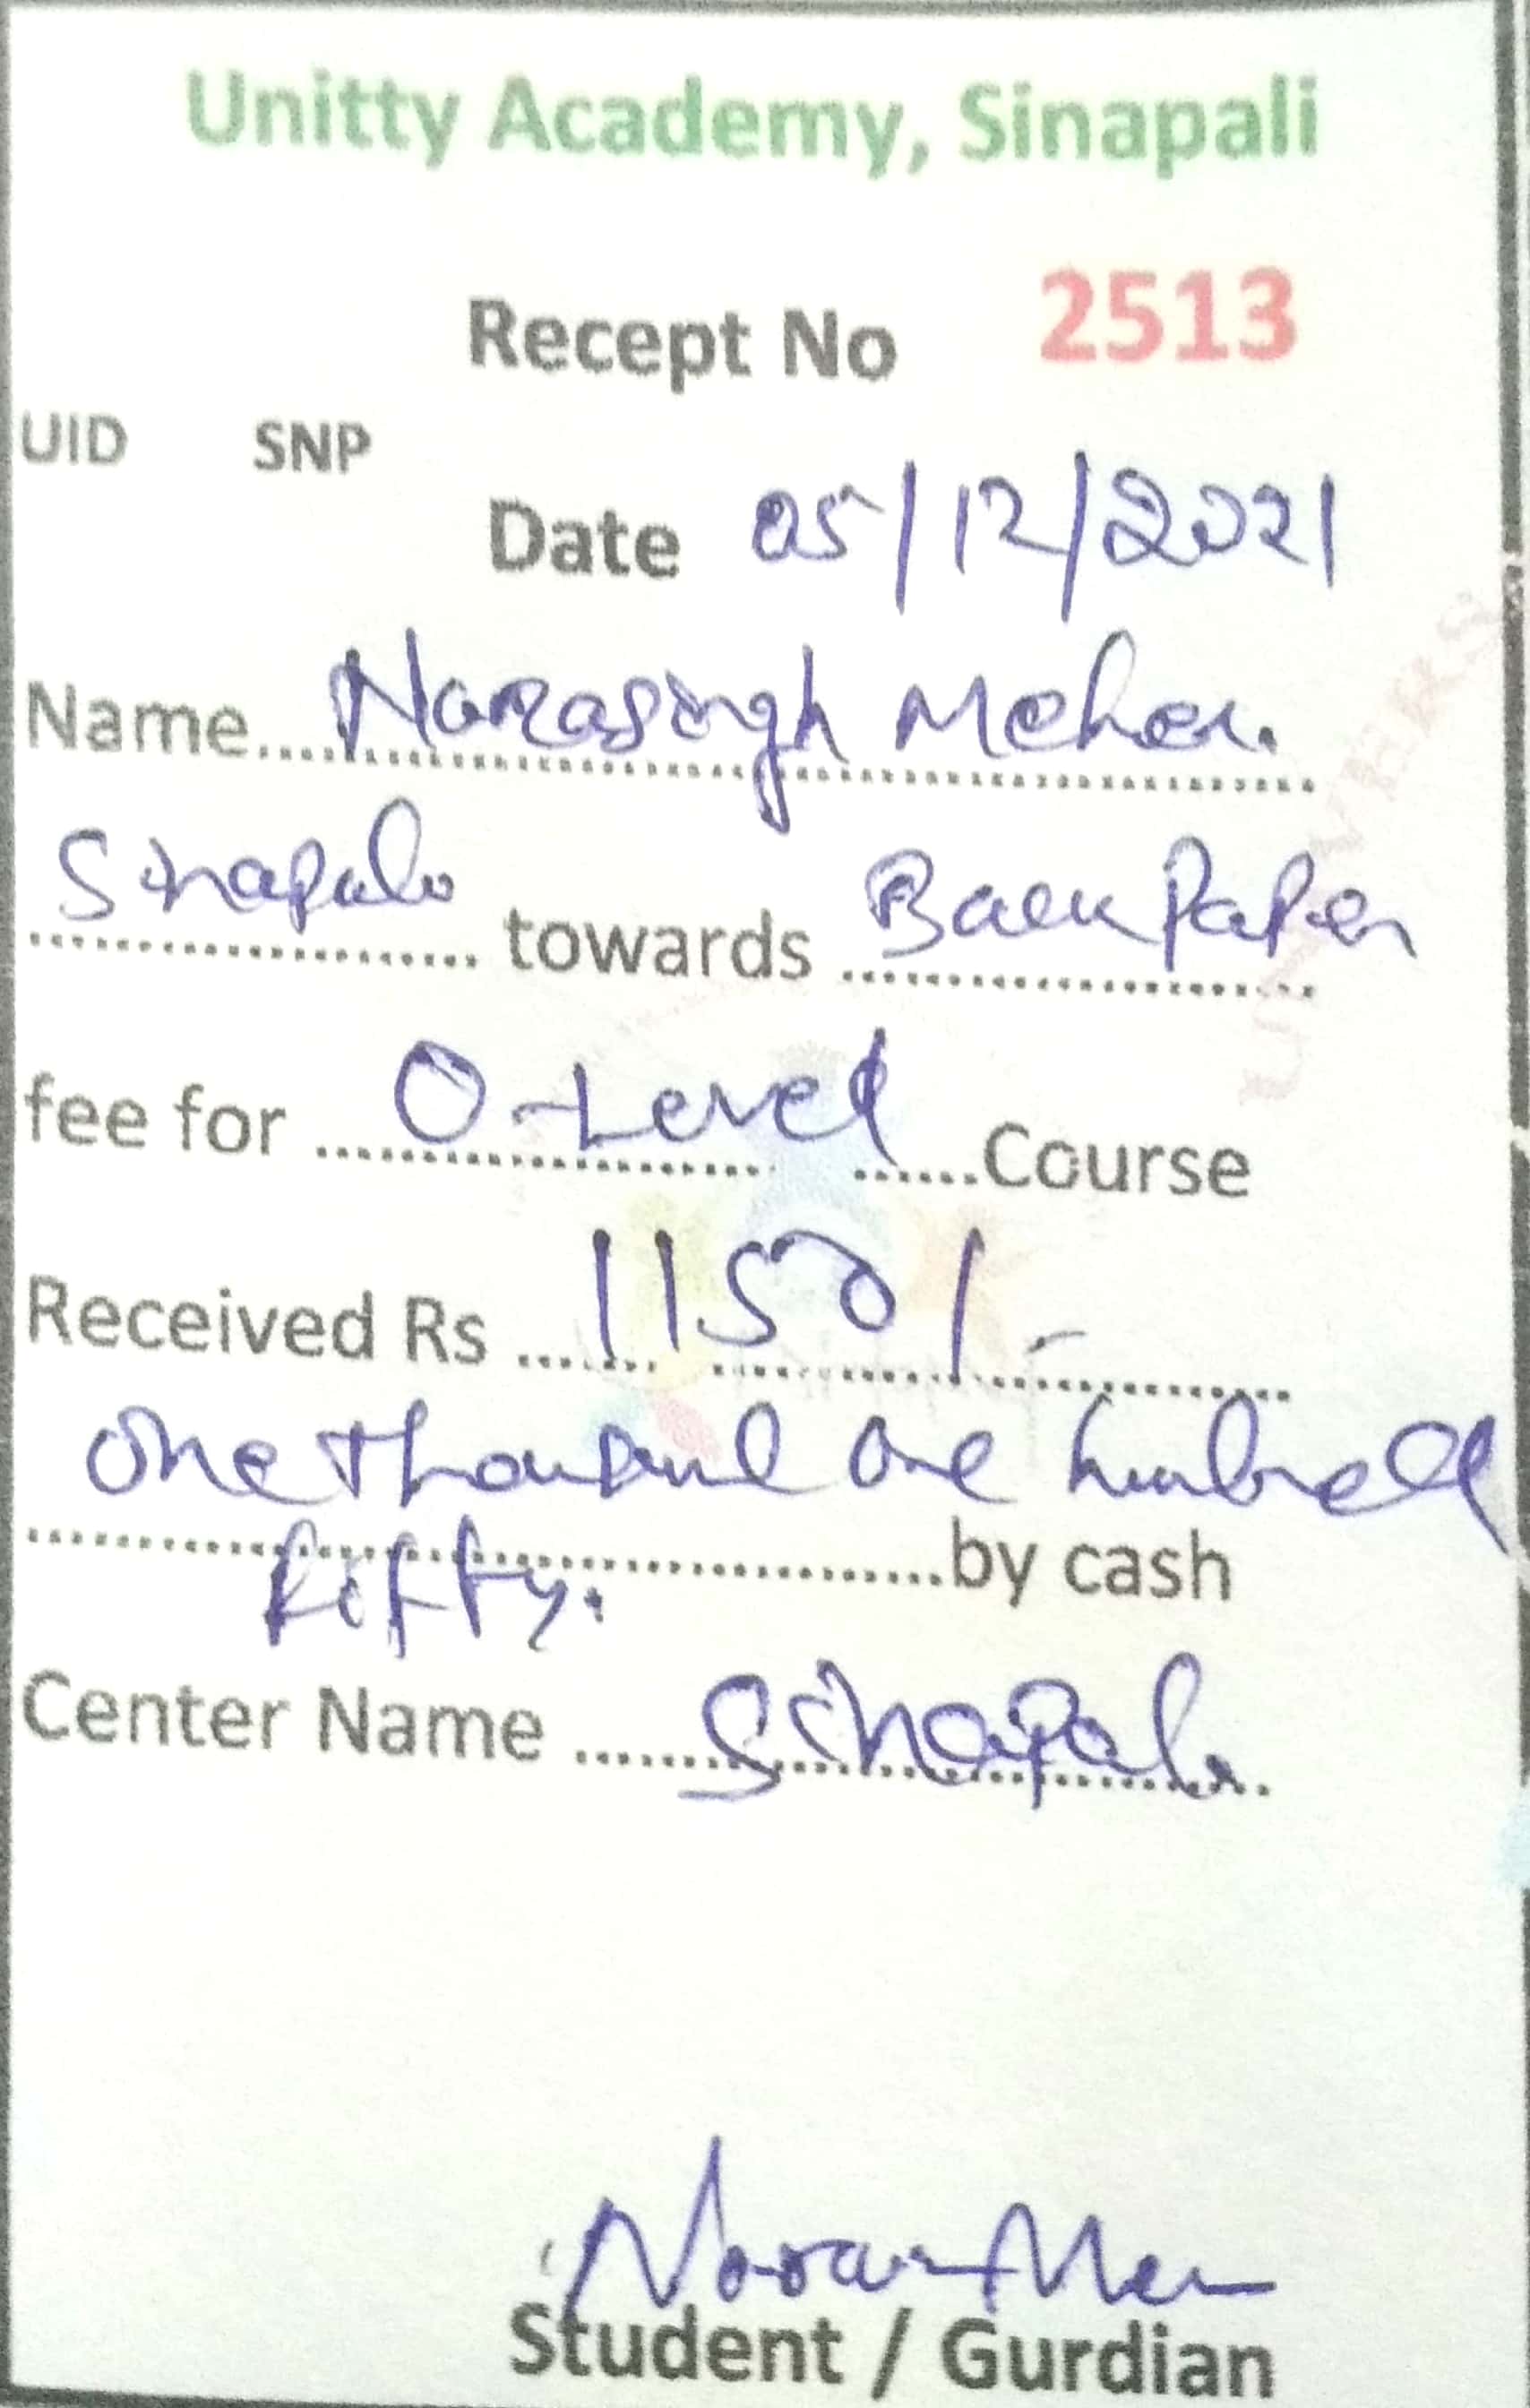 Unitty Academy, Sinapali
Recept No 2513
UID SNP
Date 05/12/2021
Name.... Narasingh Meher.
Sinapali towards Back Paper
fee for O-Level Course
Received Rs 1150/-
One thousand one hundred
fifty. by cash
Center Name Sinapali.
Student / Gurdian